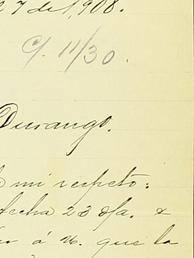 27 de 1908.
C/. 11/30.
Durango.
mi respeto:
fecha 23 
á U. que la